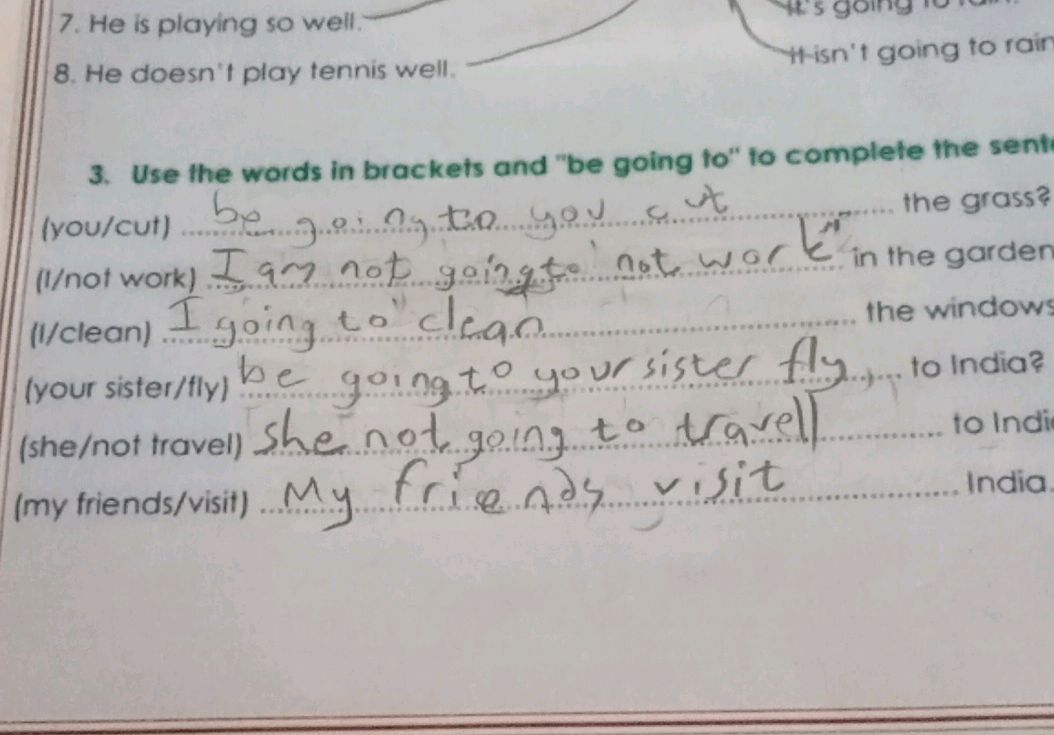 7. He is playing so well.
It's going to rain.
8. He doesn't play tennis well.
It isn't going to rain
3. Use the words in brackets and "be going to" to complete the sent
(you/cut) be going to you cut the grass?
(I/not work) I am not going to not work in the garden
(I/clean) I going to clean the windows
(your sister/fly) be going to your sister fly to India?
(she/not travel) she not going to travell to Indi
(my friends/visit) My friends visit India.